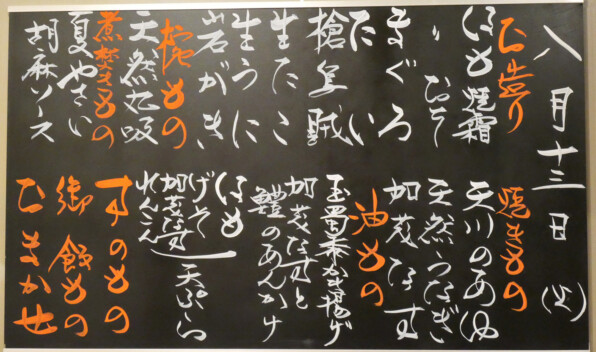 八月十三日(火)
お造り
はも焼霜
〃おとし
まぐろ
たい
槍烏賊
生たこ
生うに
岩がき
椀もの
天然丸吸
煮焚きもの
夏やさい
胡麻ソース
焼きもの
天川のあゆ
天然うなぎ
加茂なす
油もの
玉蜀黍かき揚げ
加茂なすと
鱧のあんかけ
はも
げそ
加茂なす
れんこん
天ぷら
すのもの
御飯もの
おまかせ